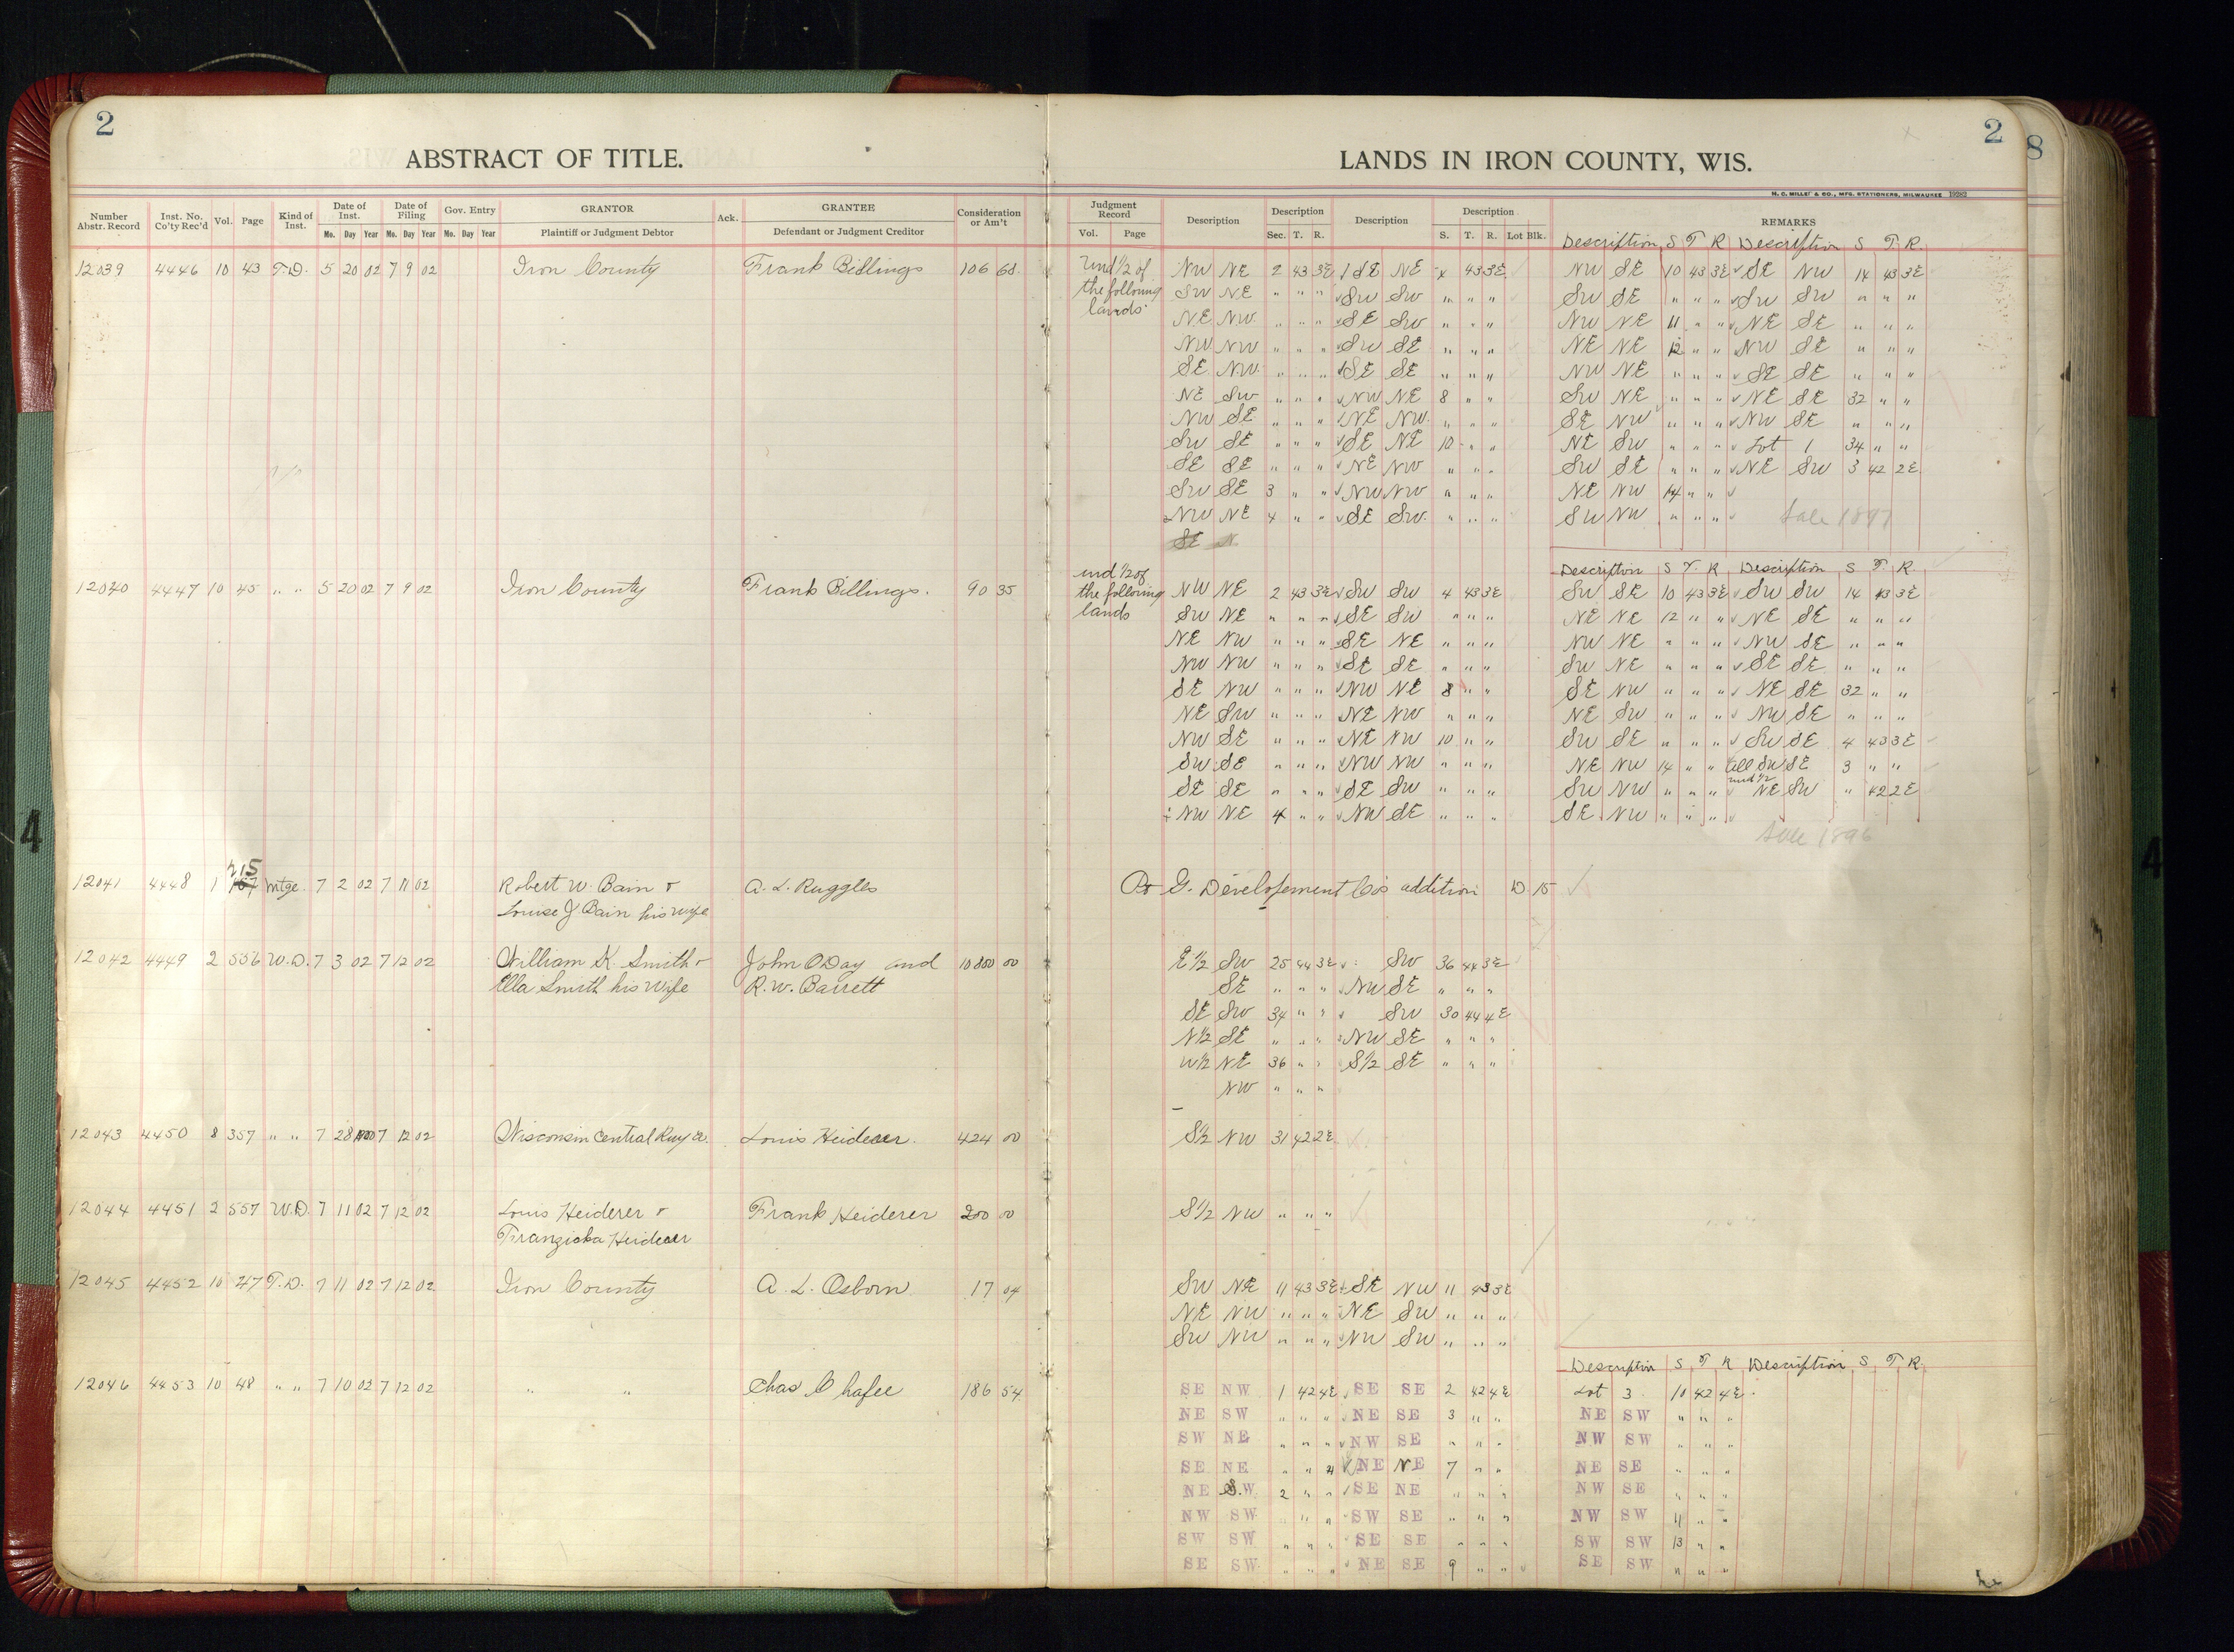 2
ABSTRACT OF TITLE.
LANDS IN IRON COUNTY, WIS.
2
8
H. C. MILLER & CO., MFG. STATIONERS, MILWAUKEE 19282
Number Abstr. Record Inst. No. Co'ty Rec'd Vol. Page Kind of Inst. Date of Inst. Mo. Day Year Date of Filing Mo. Day Year Gov. Entry Mo. Day Year GRANTOR Plaintiff or Judgment Debtor Ack. GRANTEE Defendant or Judgment Creditor Consideration or Am't
Judgment Record Vol. Page Description Description Sec. T. R. Description Description S. T. R. Lot Blk. REMARKS
Description S T R Description S T. R.
12039 4446 10 43 T.D. 5 20 02 7 9 02 Iron County Frank Billings 106 68 Und 1/2 of NW NE 2 43 3E SE NE 4 43 3E NW SE 10 43 3E SE NW 14 43 3E
the following SW NE " " " SW SW " " " SW SE " " " SW SW " " "
lands NE NW " " " SE SW " " " NW NE 11 " " NE SE " " "
NW NW " " " SW SE " " " NE NE 12 " " NW SE " " "
SE NW " " " SE SE " " " NW NE " " " SE SE " " "
NE SW " " " NW NE 8 " " SW NE " " " NE SE 32 " "
NW SE " " " NE NW " " " SE NW " " " NW SE " " "
SW SE " " " SE NE 10 " " NE SW " " " Lot 1 34 " "
SE SE " " " NE NW " " " SW SE " " " NE SW 3 42 2E
SW SE 3 " " NW NW " " " NE NW 14 " "
NW NE 4 " " SE SW " " " SW NW " " " Sale 1897
SE N
Description S T. R Description S T. R.
12040 4447 10 45 " " 5 20 02 7 9 02 Iron County Frank Billings. 90 35 und 1/2 of the following lands NW NE 2 43 3E SW SW 4 43 3E SW SE 10 43 3E SW SW 14 43 3E
SW NE " " " SE SW " " " NE NE 12 " " NE SE " " "
NE NW " " " SE NE " " " NW NE " " " NW SE " " "
NW NW " " " SE SE " " " SW NE " " " SE SE " " "
SE NW " " " NW NE 8 " " SE NW " " " NE SE 32 " "
NE SW " " " NE NW " " " NE SW " " " NW SE " " "
NW SE " " " NE NW 10 " " SW SE " " " SW SE 4 43 3E
SW SE " " " NW NW " " " NE NW 14 " " all SW SE 3 " "
SE SE " " " SE SW " " " SW NW " " " und 1/2 NE SW " 42 2E
NW NE 4 " " NW SE " " " SE NW " " "
Sale 1896
215
12041 4448 1 Mtge. 7 2 02 7 11 02 Robert W. Bain & A. L. Ruggles G. Developement Co's addition D. 15
Louise J. Bain his wife
12042 4449 2 556 W.D. 7 3 02 7 12 02 William K. Smith & John O'Day and 10800 00 E1/2 SW 25 44 3E SW 36 44 3E
Ella Smith his wife R. W. Barrett SE " " " NW SE " " "
SE SW 34 " " SW 30 44 4E
N1/2 SE " " " NW SE " " "
W1/2 NE 36 " " S1/2 SE " " "
NW " " "
12043 4450 8 357 " " 7 28 1900 7 12 02 Wisconsin Central Rwy Co. Louis Heiderer. 424 00 S1/2 NW 31 42 2E
12044 4451 2 557 W.D. 7 11 02 7 12 02 Louis Heiderer & Frank Heiderer 200 00 S1/2 NW " " "
Franziska Heiderer
12045 4452 10 47 T.D. 7 11 02 7 12 02 Iron County A. L. Osborn 17 04 SW NE 11 43 3E SE NW 11 43 3E
NE NW " " " NE SW " " "
SW NW " " " NW SW " " "
Description S T R Description S T R.
12046 4453 10 48 " " 7 10 02 7 12 02 " " Chas Chafee 186 54 SE NW 1 42 4E SE SE 2 42 4E Lot 3 10 42 4E
NE SW " " " NE SE 3 " " NE SW " " "
SW NE " " " NW SE " " " NW SW " " "
SE NE " " " NE NE 7 " " NE SE " " "
NE SW 2 " " SE NE " " " NW SE " " "
NW SW " " " SW SE " " " NW SW 11 " "
SW SW " " " SE SE " " " SW SW 13 " "
SE SW " " " NE SE 9 " " SE SW " " "
4
4